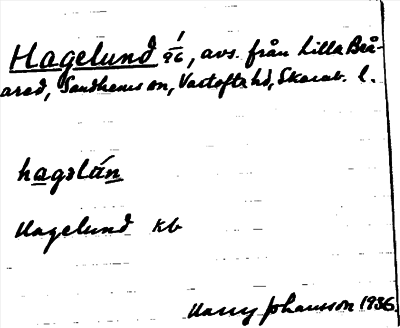 Hagelund 1/96, avs. från Lilla Brå-
ared, Sandhems sn, Vartofta hd, Skarab. l.
hagəlún
Hagelund kb
Harry Johansson 1936.